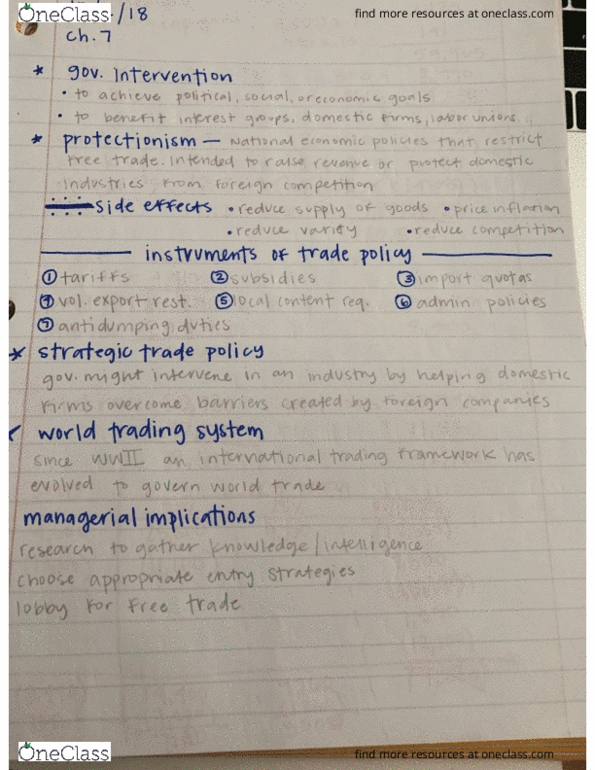 OneClass
find more resources at oneclass.com
/18
Ch. 7
* gov. Intervention
• to achieve political, social, or economic goals
• to benefit interest groups, domestic firms, labor unions.
* protectionism — National economic policies that restrict
free trade. Intended to raise revenue or protect domestic
industries from foreign competition
side effects • reduce supply of goods • price inflation
• reduce varity • reduce competition
instruments of trade policy
① tariffs ② subsidies ③ import quotas
④ vol. export rest. ⑤ local content req. ⑥ admin policies
⑦ antidumping duties
* strategic trade policy
gov. might intervene in an industry by helping domestic
firms overcome barriers created by foreign companies
world trading system
since WWII an international trading framework has
evolved to govern world trade
managerial implications
research to gather knowledge/intelligence
choose appropriate entry strategies
lobby for free trade
OneClass
find more resources at oneclass.com